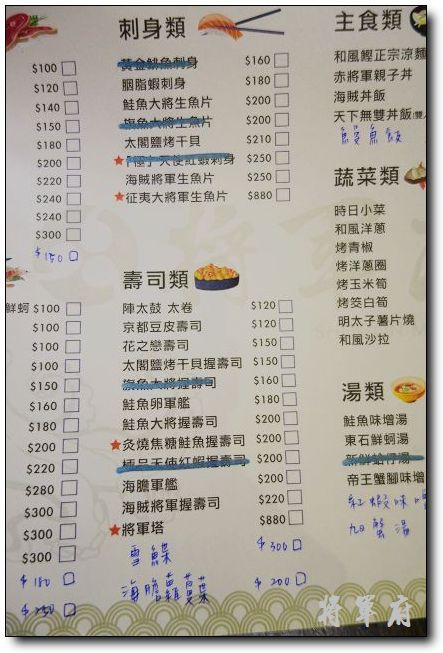 $100
$120
$140
$150
$180
$200
$220
$240
$240
$300
$150
鮮蚵 $100
$100
$100
$100
$150
$160
$180
$200
$220
$280
$300
$300
$300
$180
$250
刺身類
黃金鯡魚刺身 $160
胭脂蝦刺身 $180
鮭魚大將生魚片 $200
旗魚大將生魚片 $200
太閤鹽烤干貝 $210
★「極」天使紅蝦刺身 $250
海賊將軍生魚片 $250
★征夷大將軍生魚片 $880
壽司類
陣太鼓 太卷 $120
京都豆皮壽司 $120
花之戀壽司 $150
太閤鹽烤干貝握壽司 $150
旗魚大將握壽司 $160
鮭魚卵軍艦 $180
鮭魚大將握壽司 $200
★炙燒焦糖鮭魚握壽司 $200
極品天使紅蝦握壽司 $200
海膽軍艦 $200
海賊將軍握壽司 $220
★將軍塔 $880
雪鰈 $300
海膽蘿蔓葉 $200
主食類
和風鰹正宗涼麵
赤將軍親子丼
海賊丼飯
天下無雙丼飯(雙
鰻魚飯
蔬菜類
時日小菜
和風洋蔥
烤青椒
烤洋蔥圈
烤玉米筍
烤筊白筍
明太子薯片燒
和風沙拉
湯類
鮭魚味增湯
東石鮮蚵湯
新鮮蛤仔湯
帝王蟹腳味增
紅蝦味噌
旭蟹湯
將軍府